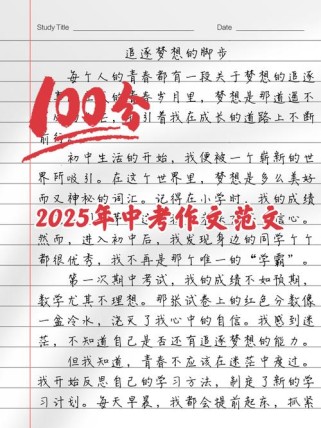 Study Title
Date
追逐梦想的脚步
每个人的青春都有一段关于梦想的追逐
青春岁月里，梦想是那道遥不
引着我在成长的道路上不断
前行
100分
初中生活的开始，我便被一个崭新的世
界所吸引。在这个世界里，梦想是多么美好
而又神秘的词汇。记得在小学时，我的成绩
信心。
2025年中考作文范文
然而，进入初中后，我发现身边的同学个个
都很优秀，我不再是那个唯一的“学霸”。
第一次期中考试，我的成绩不如预期，
数学尤其不理想。那张试卷上的红色分数像
一盆冷水，浇灭了我心中的自信。我感到迷
茫，不知道自己是否还有追逐梦想的能力。
但我知道，青春不应该在迷茫中度过。
我开始反思自己的学习方法，制定了新的学
习计划。每天早晨，我都会提前起床，抓紧